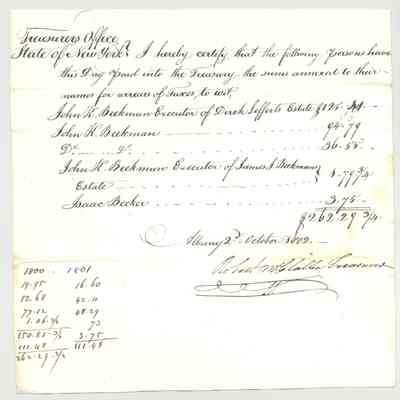 Treasurers Office
State of New York } I hereby certify that the following persons have
this Day paid into the Treasury the sums annexed to their
names for arrears of Taxes, to wit,
John K. Beekman Executor of Dirck Lefferts Estate $125.
John K. Beekman 94.79
Do. Do. 36.58
John K. Beekman Executor of James J. Beekmans
Estate 1.79 3/4
Isaac Becker 3.75
$262.29 3/4
Albany 2d October 1802
Robert McClallen Treasurer
1800 - 1801
19.95 16.60
52.68 42.11
77.12 48.29
1.06 73
150.81 3.75
111.48 111.48
262.29